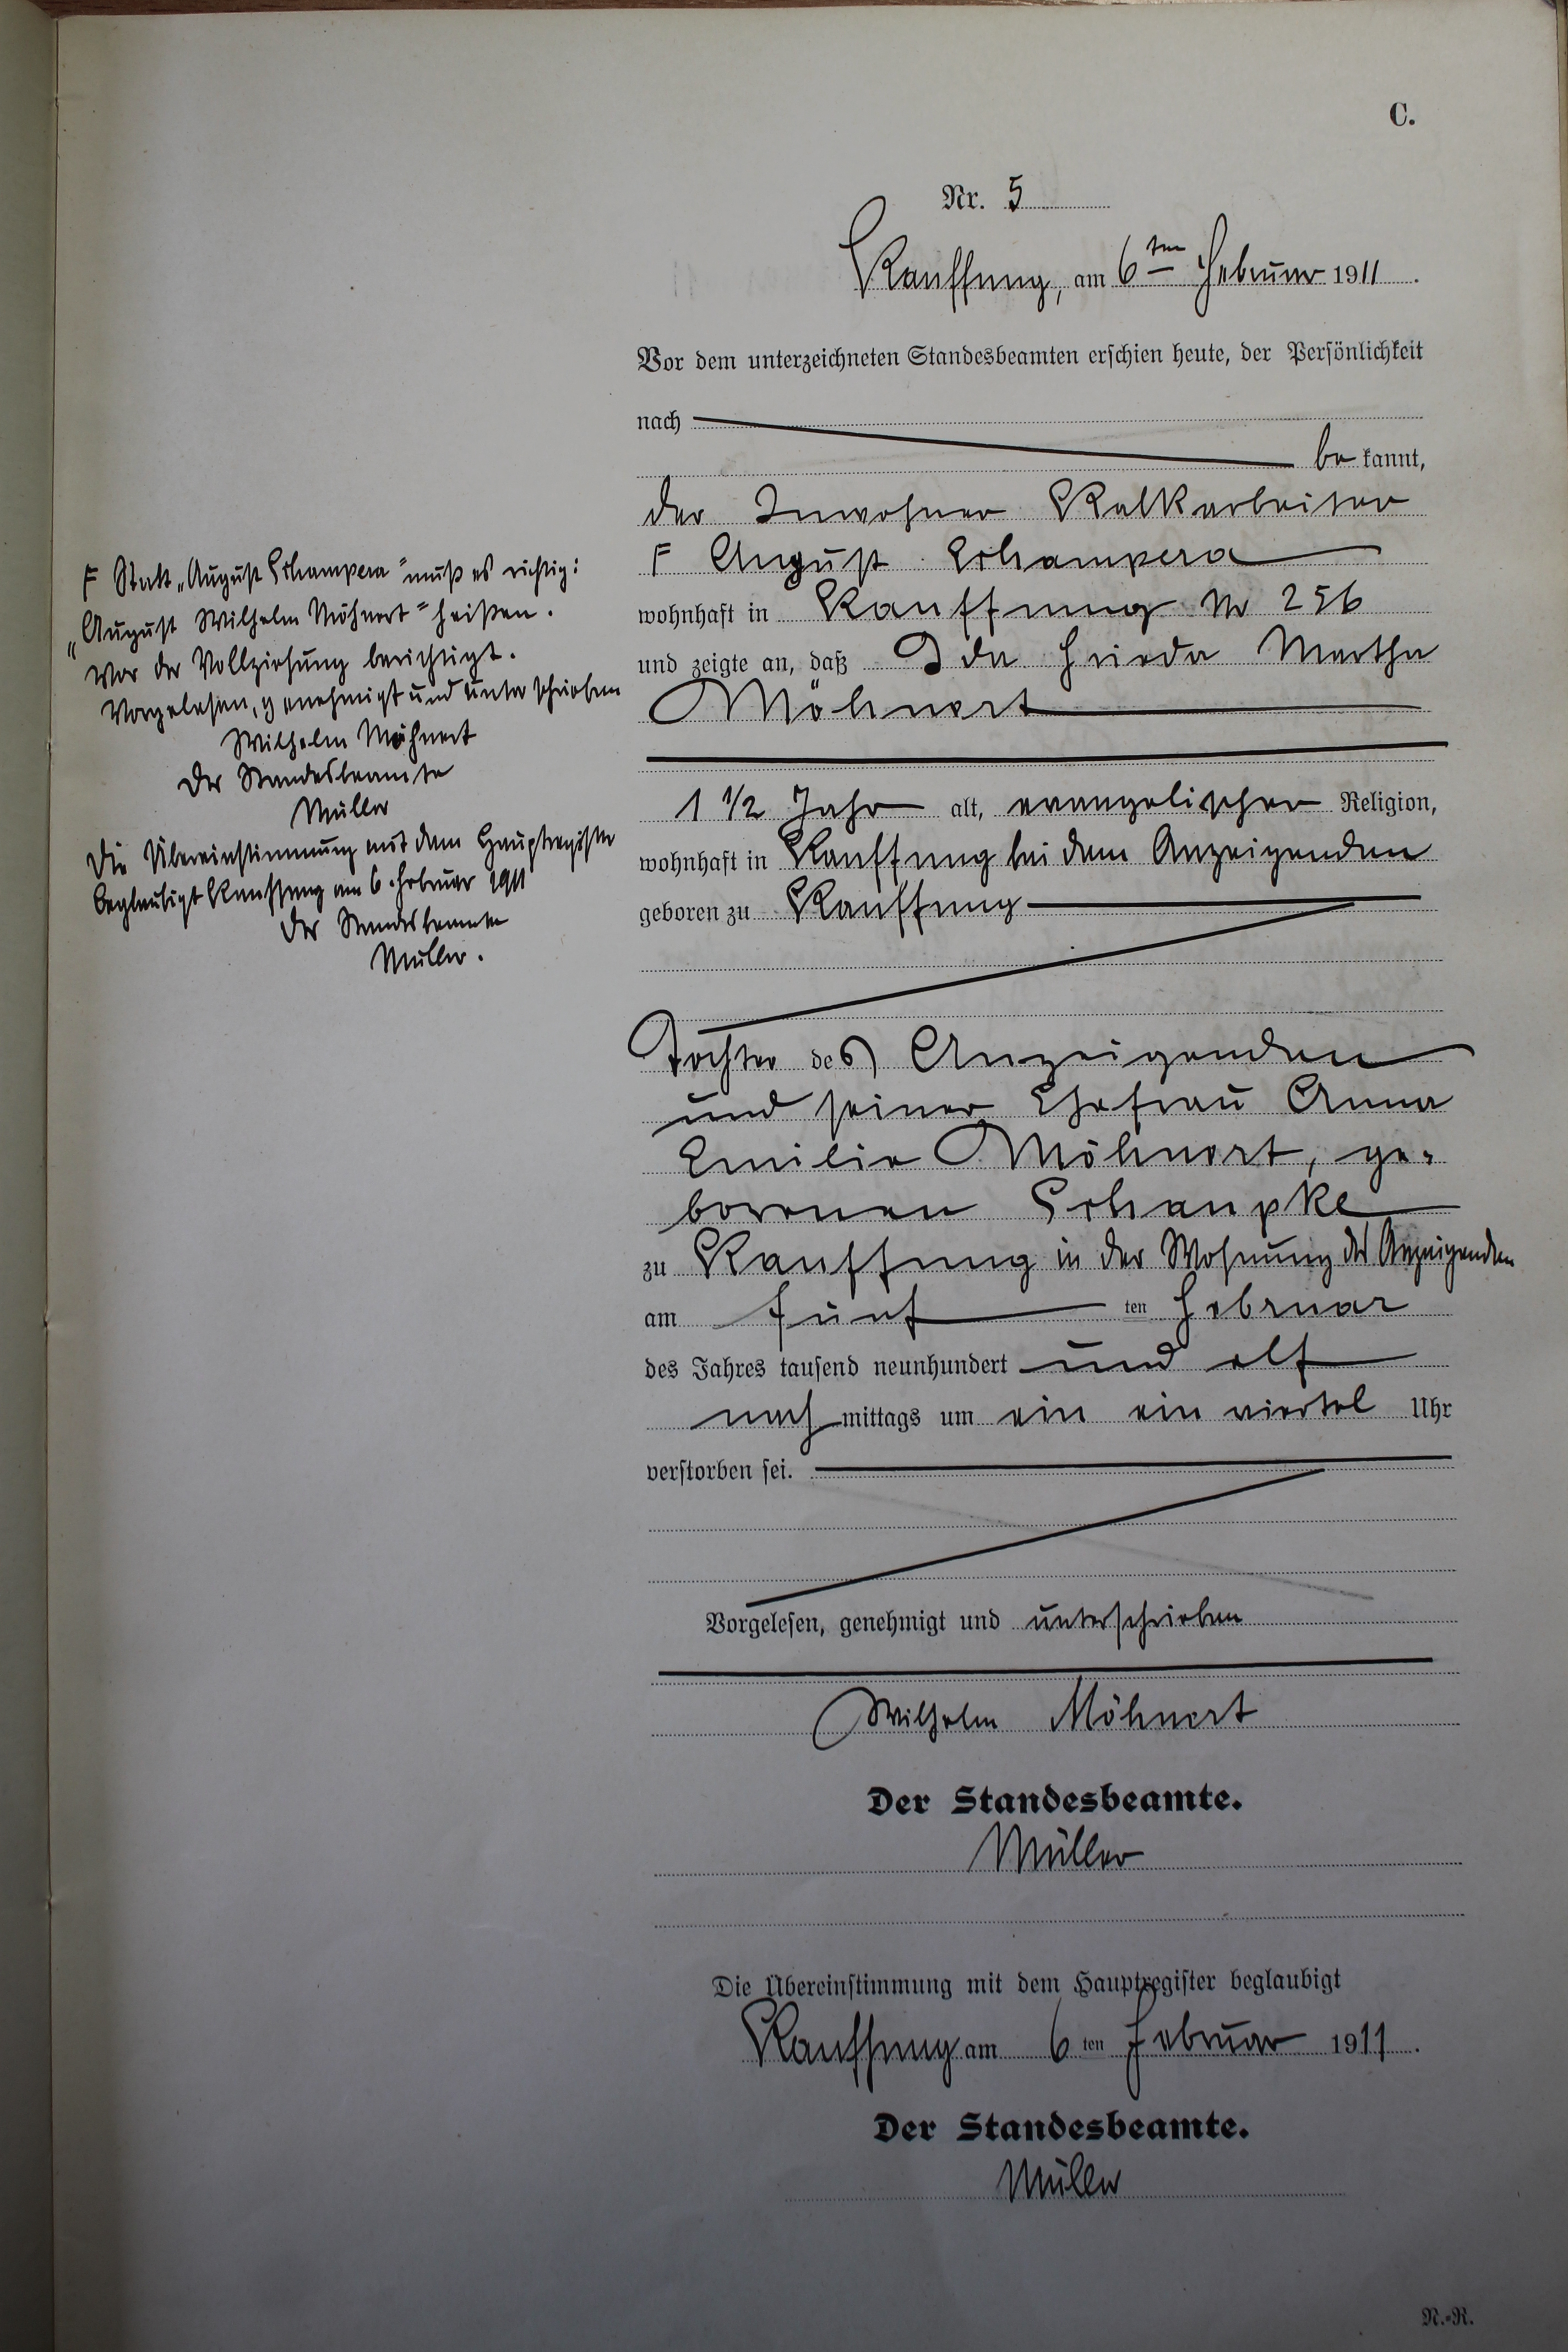 C.
Nr. 5
Kauffung, am 6ten Februar 1911.
Vor dem unterzeichneten Standesbeamten erschien heute, der Persönlichkeit
nach
be kannt,
der Inwohner Kalkarbeiter
F August Schampera
wohnhaft in Kauffung Nr 256
und zeigte an, daß Ida Frieda Martha
Möhnert
1 1/2 Jahr alt, evangelischer Religion,
wohnhaft in Kauffung bei dem Anzeigenden
geboren zu Kauffung
Tochter des Anzeigenden
und seiner Ehefrau Anna
Emilie Möhnert, ge-
borenen Schaupke
zu Kauffung in der Wohnung des Anzeigenden
am fünf ten Februar
des Jahres tausend neunhundert und elf
nach mittags um ein ein viertel Uhr
verstorben sei.
Vorgelesen, genehmigt und unterschrieben
Wilhelm Möhnert
Der Standesbeamte.
Müller
Die Übereinstimmung mit dem Hauptregister beglaubigt
Kauffung am 6 ten Februar 1911.
Der Standesbeamte.
Müller
N.-R.
F Statt „August Schampera" muß es richtig:
„August Wilhelm Möhnert" heißen.
Vor der Vollziehung berichtigt.
Vorgelesen, genehmigt und unterschrieben
Wilhelm Möhnert
Der Standesbeamte
Müller
Die Übereinstimmung mit dem Hauptregister
beglaubigt Kauffung am 6. Februar 1911
Der Standesbeamte
Müller.